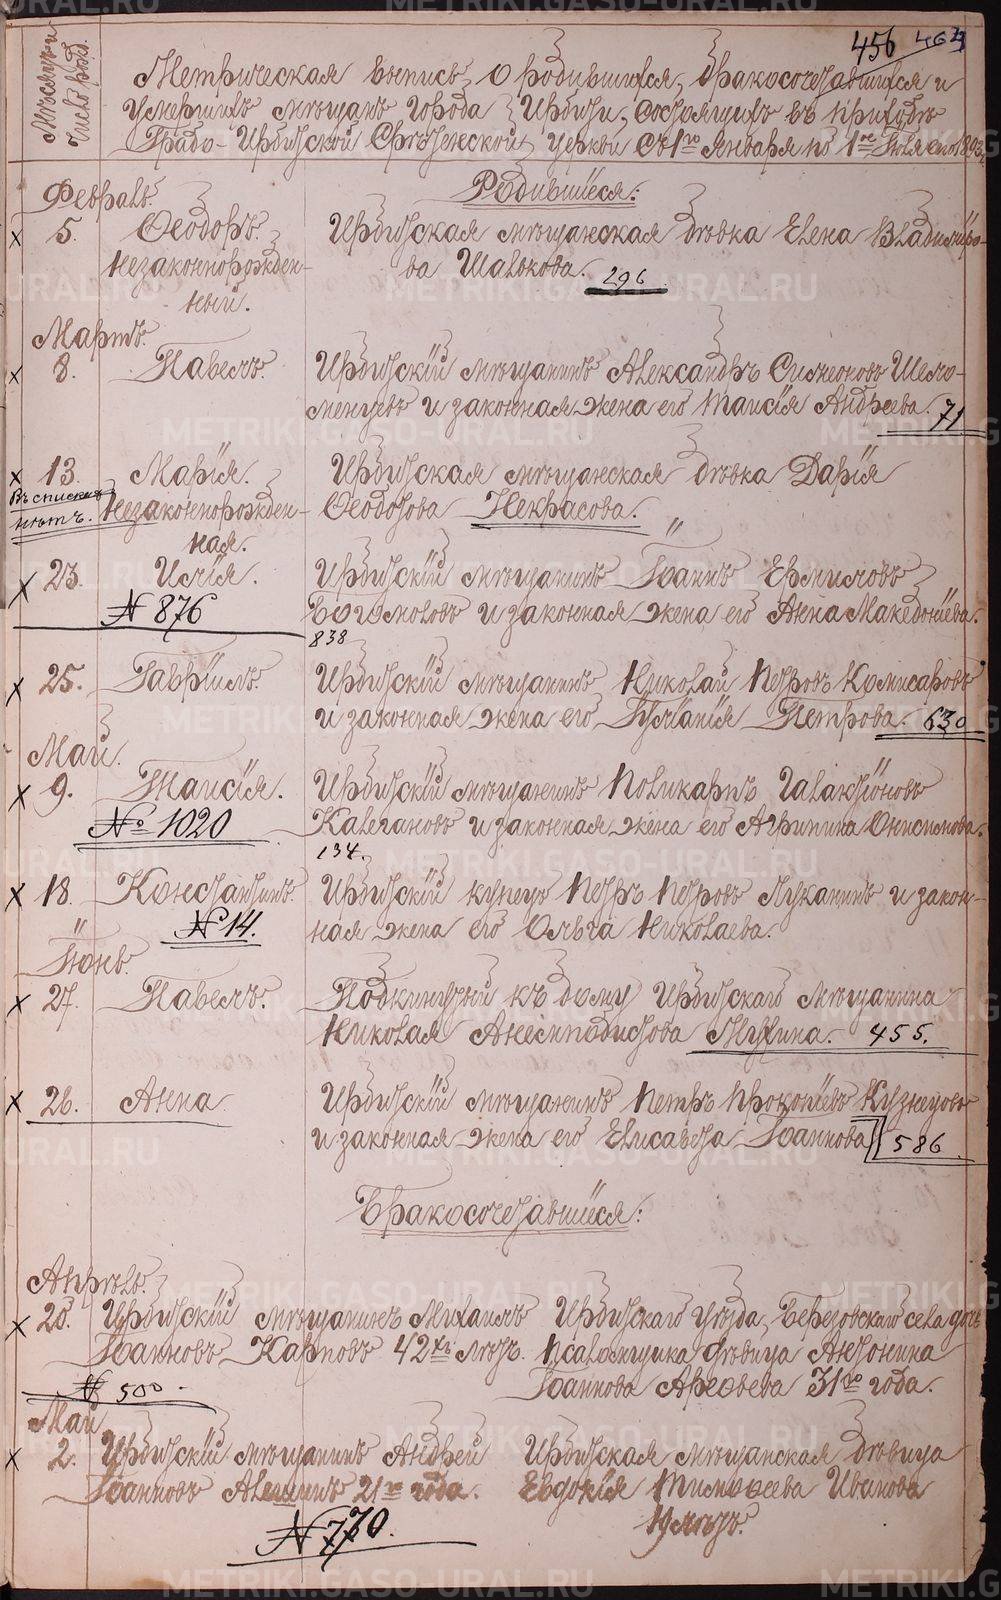 456 464
Мѣсяцъ и
число рожд.
Метрическая выпись, о родившихся, бракосочетавшихся и
умершихъ мѣщанъ города Ирбита, состоящихъ въ приходѣ
Градо-Ирбитской Срѣтенской церкви съ 1го Января по 1е Іюля
Февраль.
Родившіеся:
5. Ѳеодоръ. Ирбитская мѣщанская дѣвка Елена Владиміро-
незаконнорожден- ва Шалькова. 296
ный.
Мартъ.
8. Павелъ. Ирбитскій мѣщанинъ Александръ Симеоновъ Шело-
менцевъ и законная жена его Таисія Андреева. 71
13. Марія. Ирбитская мѣщанская дѣвка Дарія
Въ спискахъ незаконнорожден- Ѳеодотова Некрасова.
нѣтъ. ная.
23. Илія. Ирбитскій мѣщанинъ Іоаннъ Ермиловъ
№ 876 Богомоловъ и законная жена его Анна Македоніева.
838
25. Гавріилъ. Ирбитскій мѣщанинъ Николай Петровъ Комисаровъ
и законная жена его Іуліанія Петрова. 630
Май.
9. Таисія. Ирбитскій мѣщанинъ Поликарпъ Галактіоновъ
№ 1020 Калегановъ и законная жена его Агрипина Онисимова.
134.
18. Константинъ. Ирбитскій купецъ Петръ Петровъ Луканинъ и закон-
№ 14. ная жена его Ольга Николаева.
Іюнь.
27. Павелъ. Подкинутый къ дому Ирбитскаго мѣщанина
Николая Анемподистова Мухина. 455.
26. Анна Ирбитскій мѣщанинъ Петръ Прокопіевъ Кузнецовъ
и законная жена его Елисавета Іоаннова 586
Бракосочетавшіеся:
Апрѣль.
20. Ирбитскій мѣщанинъ Михаилъ Ирбитскаго уѣзда, Березовскаго села дочь
Іоанновъ Карповъ 42хъ лѣтъ. Псаломщика дѣвица Антонина
№ 500. Іоаннова 31го года.
Май
2. Ирбитскій мѣщанинъ Андрей Ирбитская мѣщанская дѣвица
Іоанновъ Алешинъ 21го года. Евдокія Тимоѳеева Иванова
19 лѣтъ.
№ 770.
METRIKI.GASO-URAL.RU